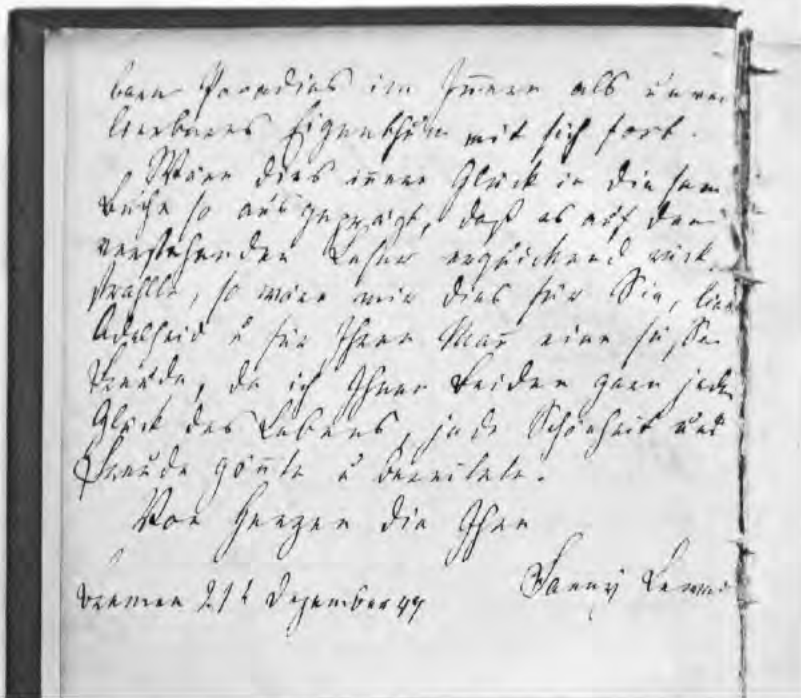 baren Paradies im Iñern als unver
lierbares Eigenthum mit sich fort.
Wäre dies iñere Glück in diesem
Buche so ausgeprägt, daß es auf den
verstehenden Leser erquickend rück
strahlte, so wäre mir dies für Sie, liebe
Adelheid u für Ihren Mañ eine süße
Freude, da ich Ihnen Beiden gern jedes
Glück des Lebens, jede Schönheit und
Freude göñte u bereitete.
Von Herzen die Ihre
Fanny Lewald
Bremen 21t Dezember 49